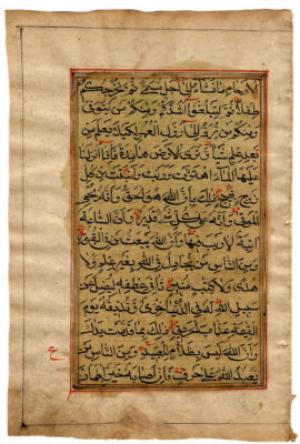 الارحام ما نشاء الى اجل مسمى ثم نخرجكم
طفلا ثم لتبلغوا اشدكم ومنكم من يتوفى
ومنكم من يرد الى ارذل العمر لكيلا يعلم من
بعد علم شيئا وترى الارض هامدة فاذا انزلنا
عليها الماء اهتزت وربت وانبتت من كل
زوج بهيج ذلك بان الله هو الحق وانه يحيي
الموتى وانه على كل شيء قدير وان الساعة
اتية لا ريب فيها وان الله يبعث من في القبور
ومن الناس من يجادل في الله بغير علم ولا
هدى ولا كتب منير ثاني عطفه ليضل عن
سبيل الله له في الدنيا خزي ونذيقه يوم
القيمة عذاب الحريق ذلك بما قدمت يداك
وان الله ليس بظلام للعبيد ومن الناس من
يعبد الله على حرف فان اصابه خير اطمان